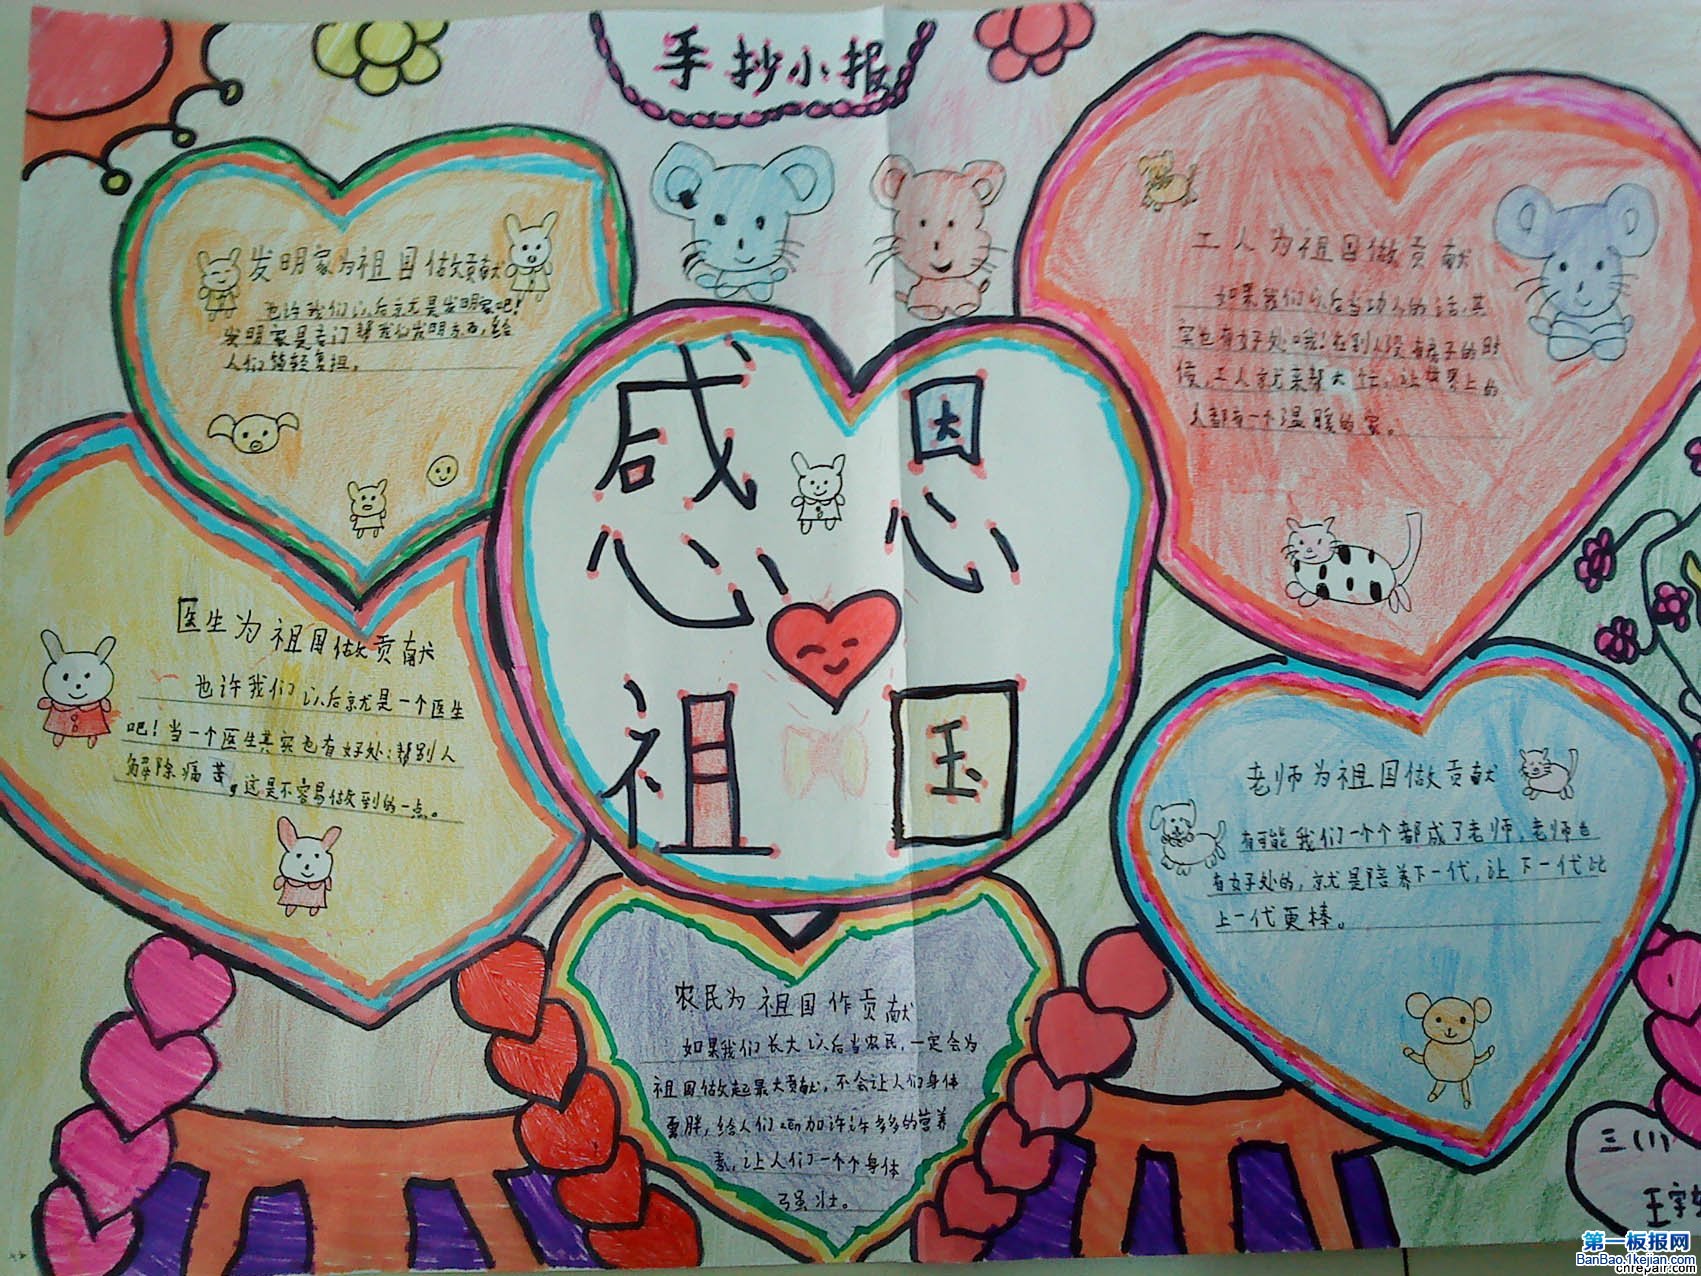 手抄小报
发明家为祖国做贡献
也许我们以后就是发明家吧!
发明家是专门帮我们发明东西,给
人们减轻负担。
工人为祖国做贡献
如果我们以后当功人的话,其
实也有好处哦!在别人没有房子的时
候,工人就来帮大忙,让世界上的
人都有一个温暖的家。
感恩
祖国
医生为祖国做贡献
也许我们以后就是一个医生
吧!当一个医生其实也有好处:帮别人
解除痛苦,这是不容易做到的一点。
老师为祖国做贡献
有可能我们一个个都成了老师,老师也
有好处的,就是陪养下一代,让下一代比
上一代更棒。
农民为祖国作贡献
如果我们长大以后当农民,一定会为
祖国做起最大贡献,不会让人们身体
胖,给人们zen加许许多多的营养
素,让人们一个个身体
强壮。
三(1)
王宇
第一板报网
BanBao.1kejian.com
cnrepair.com